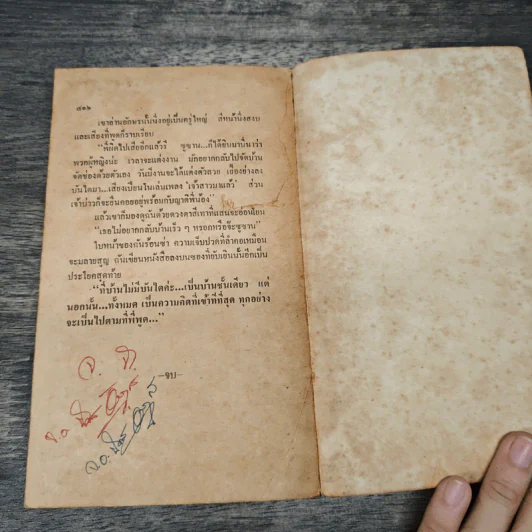 ๘๑๒
เขาอ่านอักษรนั้นนิ่งอยู่เป็นครู่ใหญ่ สีหน้านิ่งสงบ
และเสียงที่พูดก็ราบเรียบ
"พี่คิดไปเสียอีกแล้วว่า ชูขาน...ก็ได้ยินมานี่นาว่า
พวกผู้หญิงน่ะ เวลาจะแต่งงาน มักอยากกลับไปจัดบ้าน
จัดช่องด้วยตัวเอง วันมีงานจะได้แต่งตัวสวย เยื้องย่างลง
บันไดมา...เสียงเปียโนเล่นเพลง 'เจ้าสาวมาแล้ว' ส่วน
เจ้าบ่าวก็จะยืนคอยอยู่พร้อมกับญาติพี่น้อง"
แล้วเขาก็มองดูฉันด้วยดวงตาสีเทาที่แสนจะอ่อนโยน
"เธอไม่อยากกลับบ้านเร็ว ๆ หรอกหรือจ๊ะชูขาน"
ใบหน้าของฉันร้อนซ่า ความเจ็บปวดที่ลำคอเหมือน
จะมลายสูญ ฉันเขียนหนังสือลงบนซองที่ยับเยินนั้นอีกเป็น
ประโยคสุดท้าย
"ที่บ้านไม่มีบันไดค่ะ...เป็นบ้านชั้นเดียว แต่
นอกนั้น...ทั้งหมด เป็นความคิดที่เข้าทีที่สุด ทุกอย่าง
จะเป็นไปตามที่พี่พูด..."
–จบ–